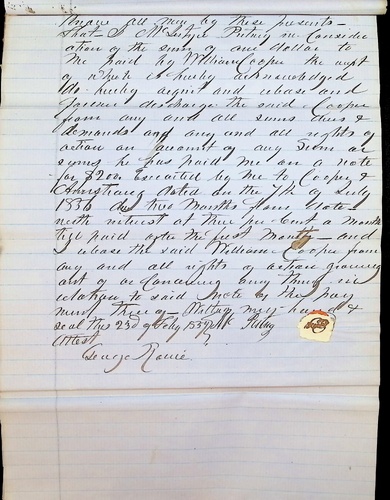 Know all men by these presents—
that I McLuther Pitney in consider
ation of the sum of one dollar to
me paid by William Cooper the rec't
of which is hereby acknowledged
do hereby acquit and release and
forever discharge the said Cooper
from any and all sums dues &
demands and any and all rights of
action on account of any sum or
sums he has paid me on a note
for $200 executed by me to Cooper &
Armstrong dated on the 7th of July
1856 due two months from date
with interest at three per cent a month
till paid after the first month— and
I release the said William Cooper from
any and all rights of action growing
out of or concerning any thing in
relation to said note or the pay
ment thereof— Witness my hand &
seal this 23d of
Attest
George Rowe